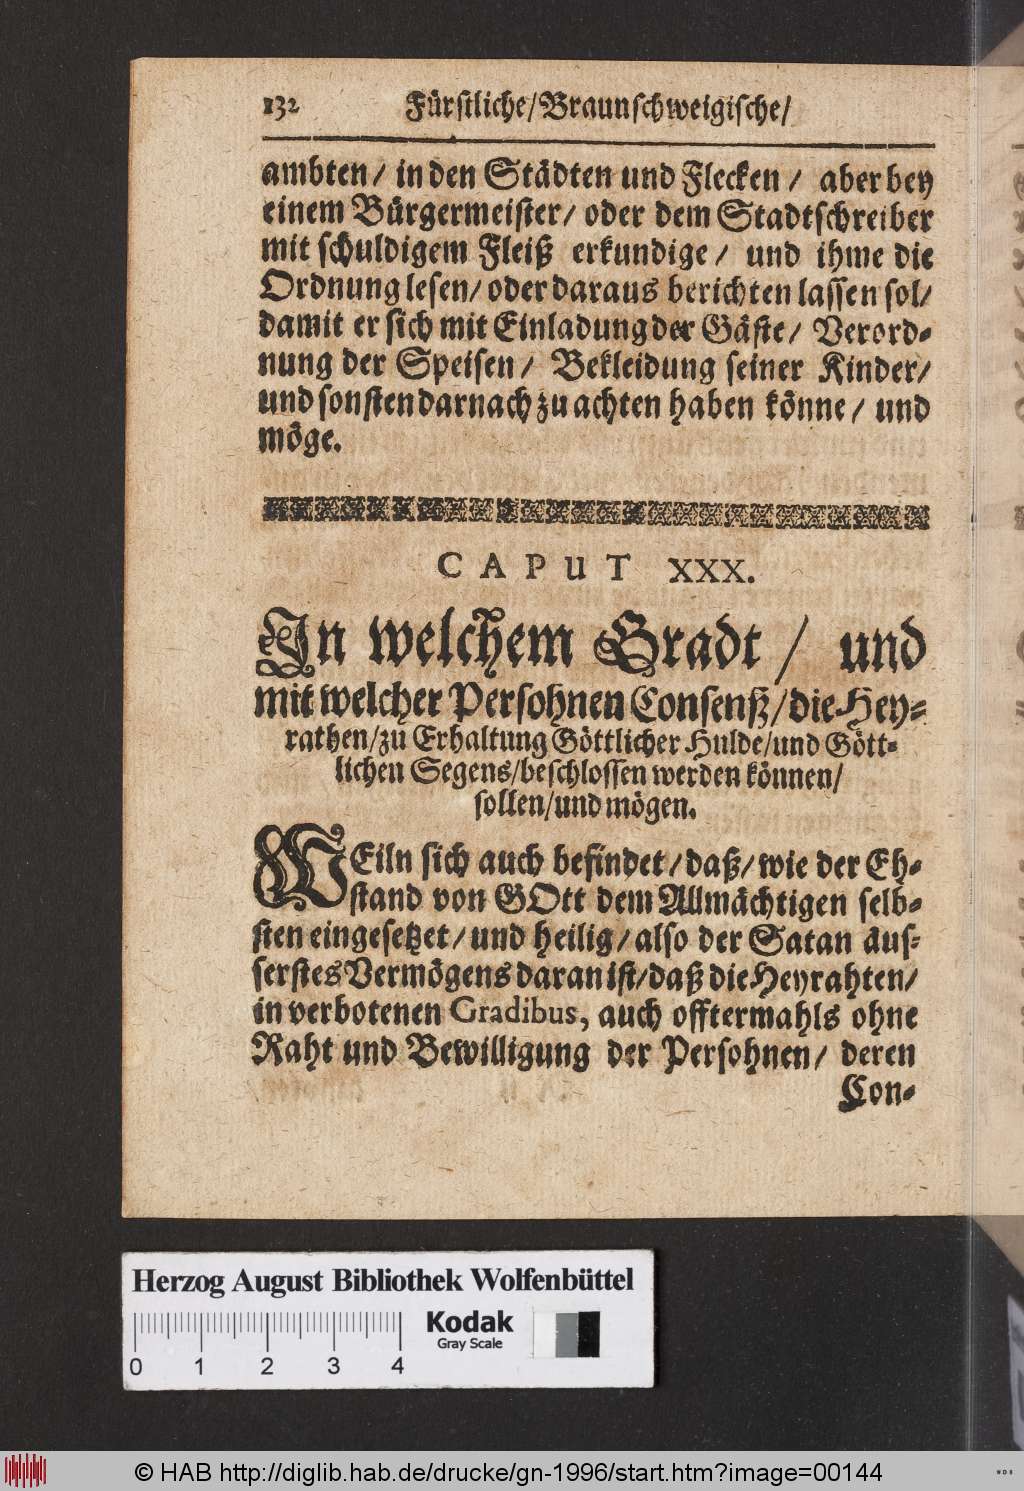 132 Fürstliche/Braunschweigische/
ambten/ in den Städten und Flecken/ aber bey
einem Bürgermeister/ oder dem Stadtschreiber
mit schuldigem Fleiß erkundige/ und ihme die
Ordnung lesen/ oder daraus berichten lassen sol/
damit er sich mit Einladung der Gäste/ Verord-
nung der Speisen/ Bekleidung seiner Kinder/
und sonsten darnach zu achten haben könne/ und
möge.
CAPUT XXX.
In welchem Gradt/ und
mit welcher Persohnen Consenß/die Hey-
rathen/zu Erhaltung Göttlicher Hulde/und Gött-
lichen Segens/beschlossen werden können/
sollen/und mögen.
WEiln sich auch befindet/daß/wie der Eh-
stand von GOtt dem Allmächtigen selb-
sten eingesetzet/und heilig/also der Satan äus-
serstes Vermögens daran ist/daß die Heyrahten/
in verbotenen Gradibus, auch offtermahls ohne
Raht und Bewilligung der Persohnen/ deren
Con-
Herzog August Bibliothek Wolfenbüttel
Kodak
Gray Scale
0 1 2 3 4
© HAB http://diglib.hab.de/drucke/gn-1996/start.htm?image=00144